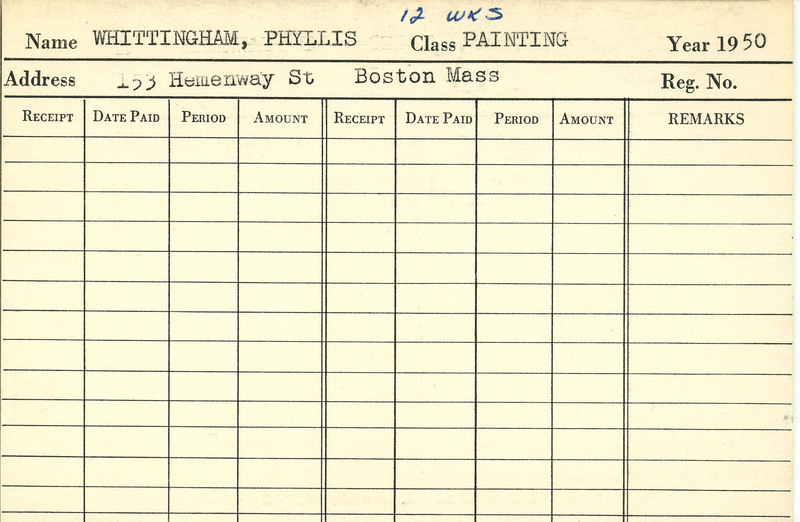 12 WKS
Name WHITTINGHAM, PHYLLIS Class PAINTING Year 1950
Address 153 Hemenway St Boston Mass Reg. No.
RECEIPT DATE PAID PERIOD AMOUNT RECEIPT DATE PAID PERIOD AMOUNT REMARKS